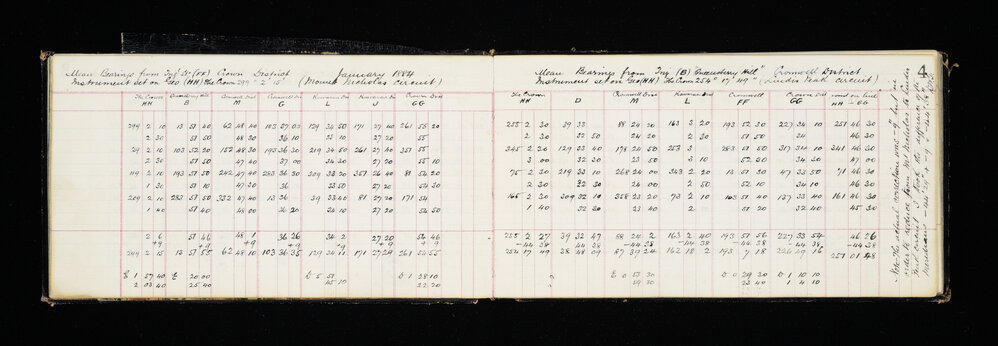 Mean Bearings from Trig Stn (FF) Cromwell District January 1884
Instrument set on Geo (HH) The Crown 299° 2' 15" (Mount Nicholas Circuit)
The Crown HH Queensbury Hill B Cromwell Dist M Cromwell Dist G Kawarau Dist L Kawarau Dist J Crown Dist GG
299 2 10 13 51 40 62 48 40 103 37 00 129 34 50 171 27 40 261 55 20
2 30 51 50 48 30 36 10 35 10 27 20 55
29 2 10 103 52 20 152 48 30 193 36 30 219 34 50 261 27 40 351 55
2 30 51 50 47 40 37 00 34 20 27 20 55 10
119 2 10 193 51 50 242 47 40 283 36 30 309 33 20 351 26 40 81 54 20
1 30 51 10 47 30 36 33 50 27 20 54 30
209 2 10 283 51 50 332 47 40 13 36 39 33 40 81 27 20 171 54
1 40 51 40 48 00 36 20 34 10 27 20 54 50
2 6 51 46 48 1 36 26 34 2 27 20 54 46
+9 +9 +9 +9 +9 +9 +9
299 2 15 13 51 55 62 48 10 103 36 35 129 34 11 171 27 29 261 54 55
E 1 57 40 E 20 00 D 5 51 D 1 28 10
2 03 40 25 40 45 10 22 20
4
Mean Bearings from Trig (B) Queensbury Hill Cromwell District
Instrument set on Geo (HH) The Crown 254° 17' 49" (Lindis Peak Circuit)
The Crown HH D Cromwell Dist M Kawarau Dist L Cromwell FF Crown Dist GG HH - GG
255 2 30 39 33 88 24 20 163 3 20 193 52 30 227 34 10 257 46 30
2 30 32 50 24 20 2 30 51 50 34 46 30
345 2 20 129 33 40 178 24 50 253 3 283 51 50 317 34 10 341 46 30
3 00 32 30 23 50 3 10 52 00 34 30 47 00
75 2 20 219 33 10 268 24 00 343 2 20 13 51 30 47 33 50 71 46 30
2 30 32 30 24 00 2 50 52 10 34 10 46 30
165 2 20 309 32 10 358 23 20 73 2 10 103 51 40 137 33 40 161 46 30
1 40 32 30 23 40 2 51 20 32 40 45 30
255 2 27 39 32 47 88 24 2 163 2 40 193 51 56 227 33 54 46 26
-44 38 -44 38 -44 38 -44 38 -44 38 -44 38 -44 38
254 17 49 38 48 09 87 39 24 162 18 2 193 7 18 226 49 16 257 01 48
E 0 53 30 D 0 29 20 D 1 10 10
59 30 23 40 1 4 10
Note The actual correction was -9" but in
order to reduce from Mt Nicholas to Lindis
Peak Circuit I took the difference of the
Meridians -44' 29" & -9" = -44' 38"